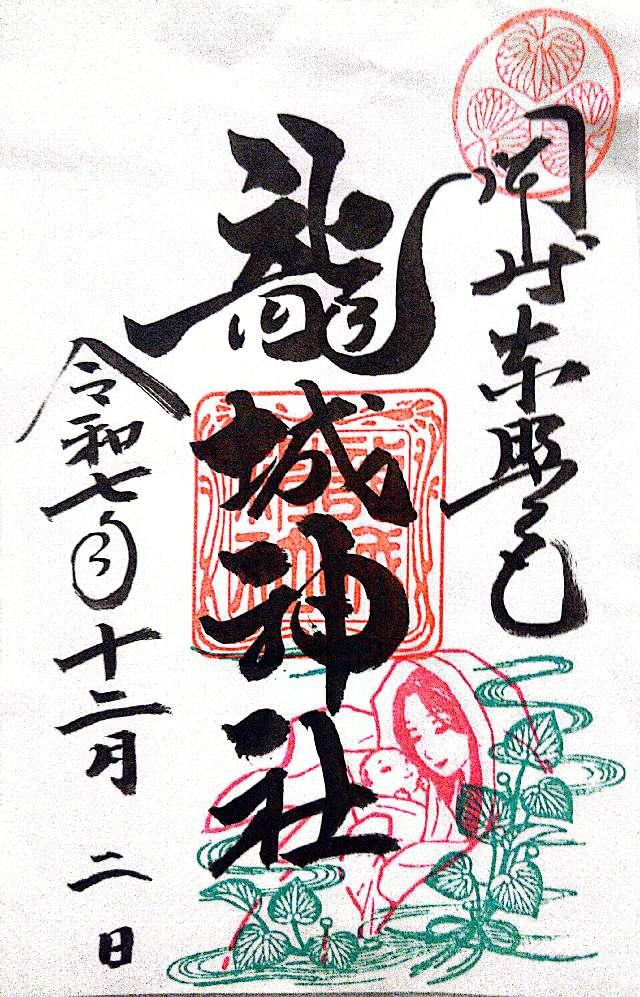 岡崎東照宮
龍城神社
令和七年十二月二日